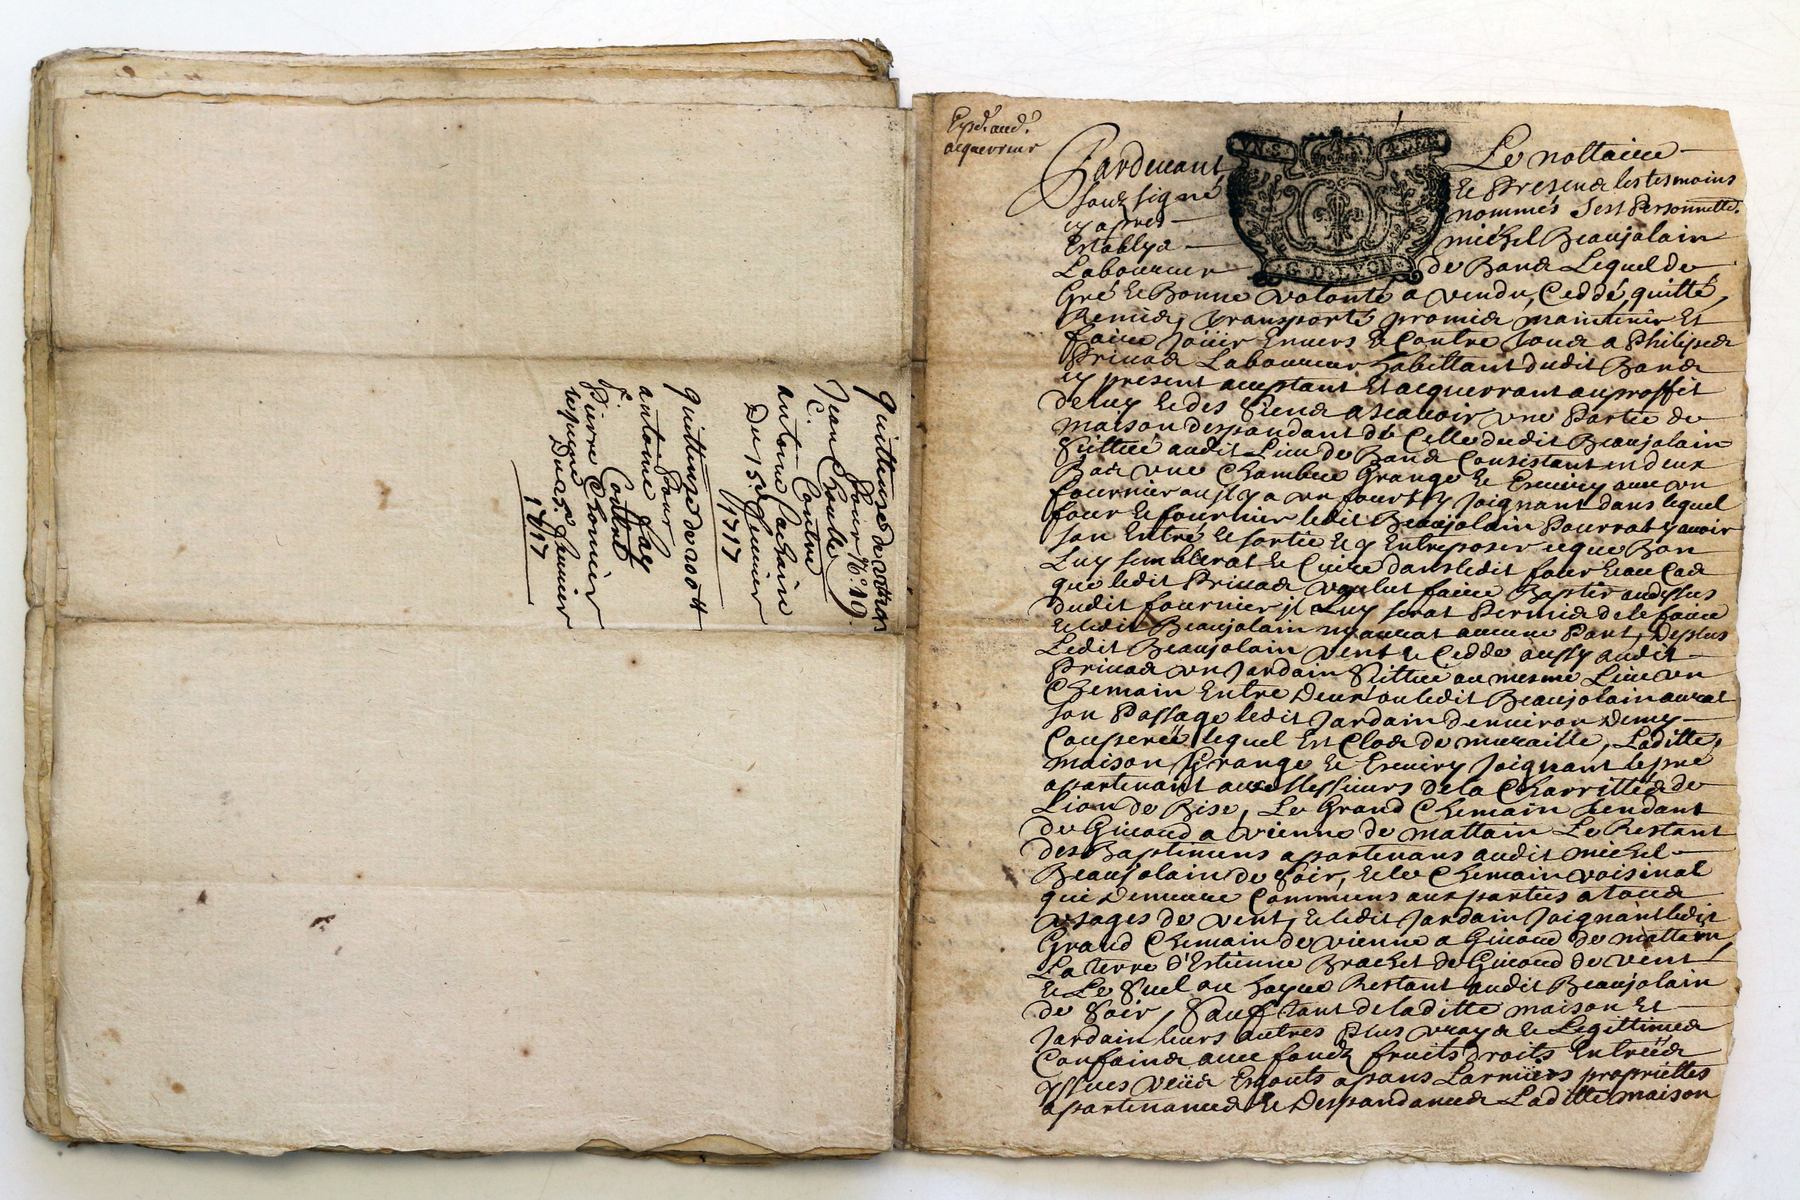 quittance de
pour
Jean
Contre
antoine
Du 15e Jenvier
1717
quittance de 200 lt
pour
antoine Fay
Contre
pierre Thomier
Du 15e Jenvier
1717
Expd. aud.
acquereur
UN S. 4 DEN
G. D. LYON
Pardevant Le nottaire
souz signé Et Presend les tesmoins
cy apres nommés s'est Personnelle.
Establyd michel Beaujolain
Laboureur de Band Lequel de
Gré et Bonne volonté a vendu, Ceddé, quitté,
Remid, transporté promid maintenir Et
faire Joüir Envers et Contre tous a Philiped
Privad Laboureur habittant dudit Band
cy present acceptant Et acquerrant au proffit
de luy et des Siend a scavoir une Partie de
maison despandant de Celle dudit Beaujolain
Sittuée audit Lieu de Band Consistant en deux
Bad une Chambre Grange et Escuiry avec un
fournier ou il y a un four y Joignant dans lequel
four et fournier ledit Beaujolain Pourrat y avoir
son Entrée et sortie et y Entreposer ce que Bon
Luy semblerat et Cuire dans ledit four Et au Cas
que ledit Privad voulut faire Bastir audessus
dudit fournier il Luy serat Permid de le faire
et ledit Beaujolain n'y aurat aucune Part, Desplus
Ledit Beaujolain vent et Cedde aussy audit
Privad un Jardain Sittué au mesme Lieu un
Chemain Entre Deux ou ledit Beaujolain aurat
son Passage ledit Jardain d'environ Demy
Couperée lequel Est Clos de muraille, Laditte
maison Grange et Escuiry Joignant le pré
apartenant aux Messieurs de la Charrittée de
Lion de Bise, Le Grand Chemain tendant
de Givord a vienne de mattain Le Restant
des Baptimens apartenans audit michel
Beaujolain de Soir, et le Chemain voisinal
qui Demeure Commiens aux parties a tous
usages de vent, et ledit Jardain Joignant ledit
Grand Chemain de vienne a Givord de mattain,
La terre d'Estienne Brachet de Givord de vent,
et Le Suel ou haque Restant audit Beaujolain
de Soir, Sauf tant de laditte maison Et
Jardain leurs autres Plus vrays et Legittimed
Confaind avec fondz fruits droits Entréed
yssues veüed Esgouts apans Larmiers proprietted
apartenanced et Despandanced Laditte maison